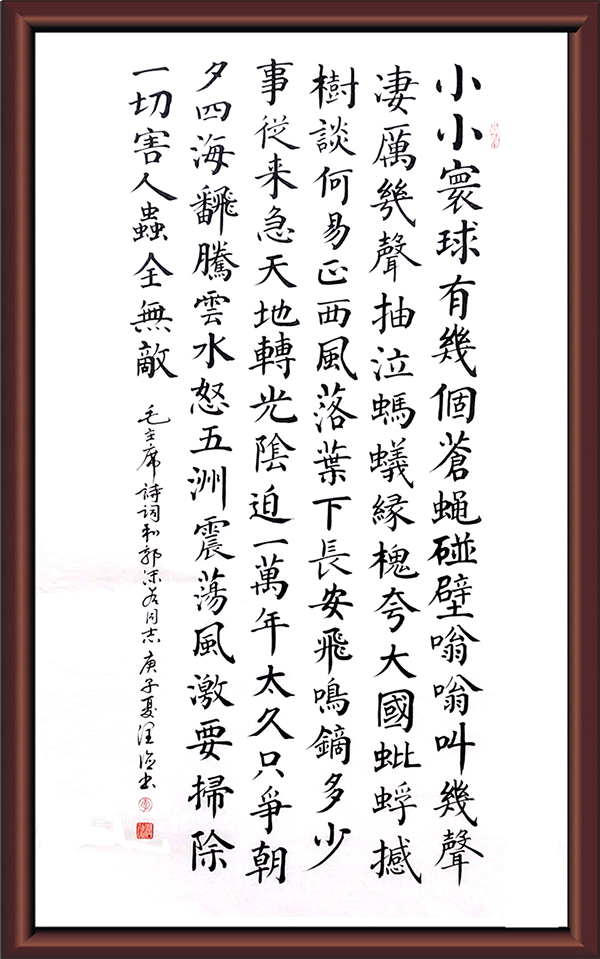 小小寰球有幾個蒼蝇碰壁嗡嗡叫幾聲
淒厲幾聲抽泣螞蟻縁槐夸大國蚍蜉撼
樹談何易正西風落葉下長安飛鳴鏑多少
事従来急天地轉光陰迫一萬年太久只爭朝
夕四海飜騰雲水怒五洲震蕩風激要掃除
一切害人蟲全無敵
毛主席詩词和郭沫若同志 庚子夏书